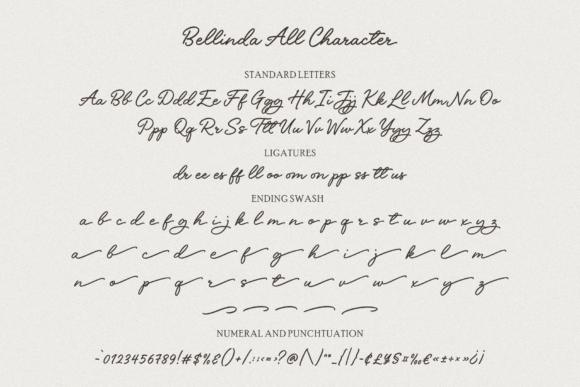 Bellinda All Character
STANDARD LETTERS
Aa Bb Cc Ddd Ee Ff Ggg Hh Ii Jjj Kk Ll Mm Nn Oo
Ppp Qq Rr Ss Ttt Uu Vv Ww Xx Yyy Zzz
LIGATURES
dr ee es ff ll oo om on pp ss tt us
ENDING SWASH
a b c d e f g h i j k l m n o p q r s t u v w x y z
a b c d e f g h i j k l m
n o p q r s t u v w x y z
NUMERAL AND PUNCHTUATION
0123456789!#$%&()+/.:;<=>?@[\]^"*_{|}~¢£¥§¤‰€«±+×»¿¡